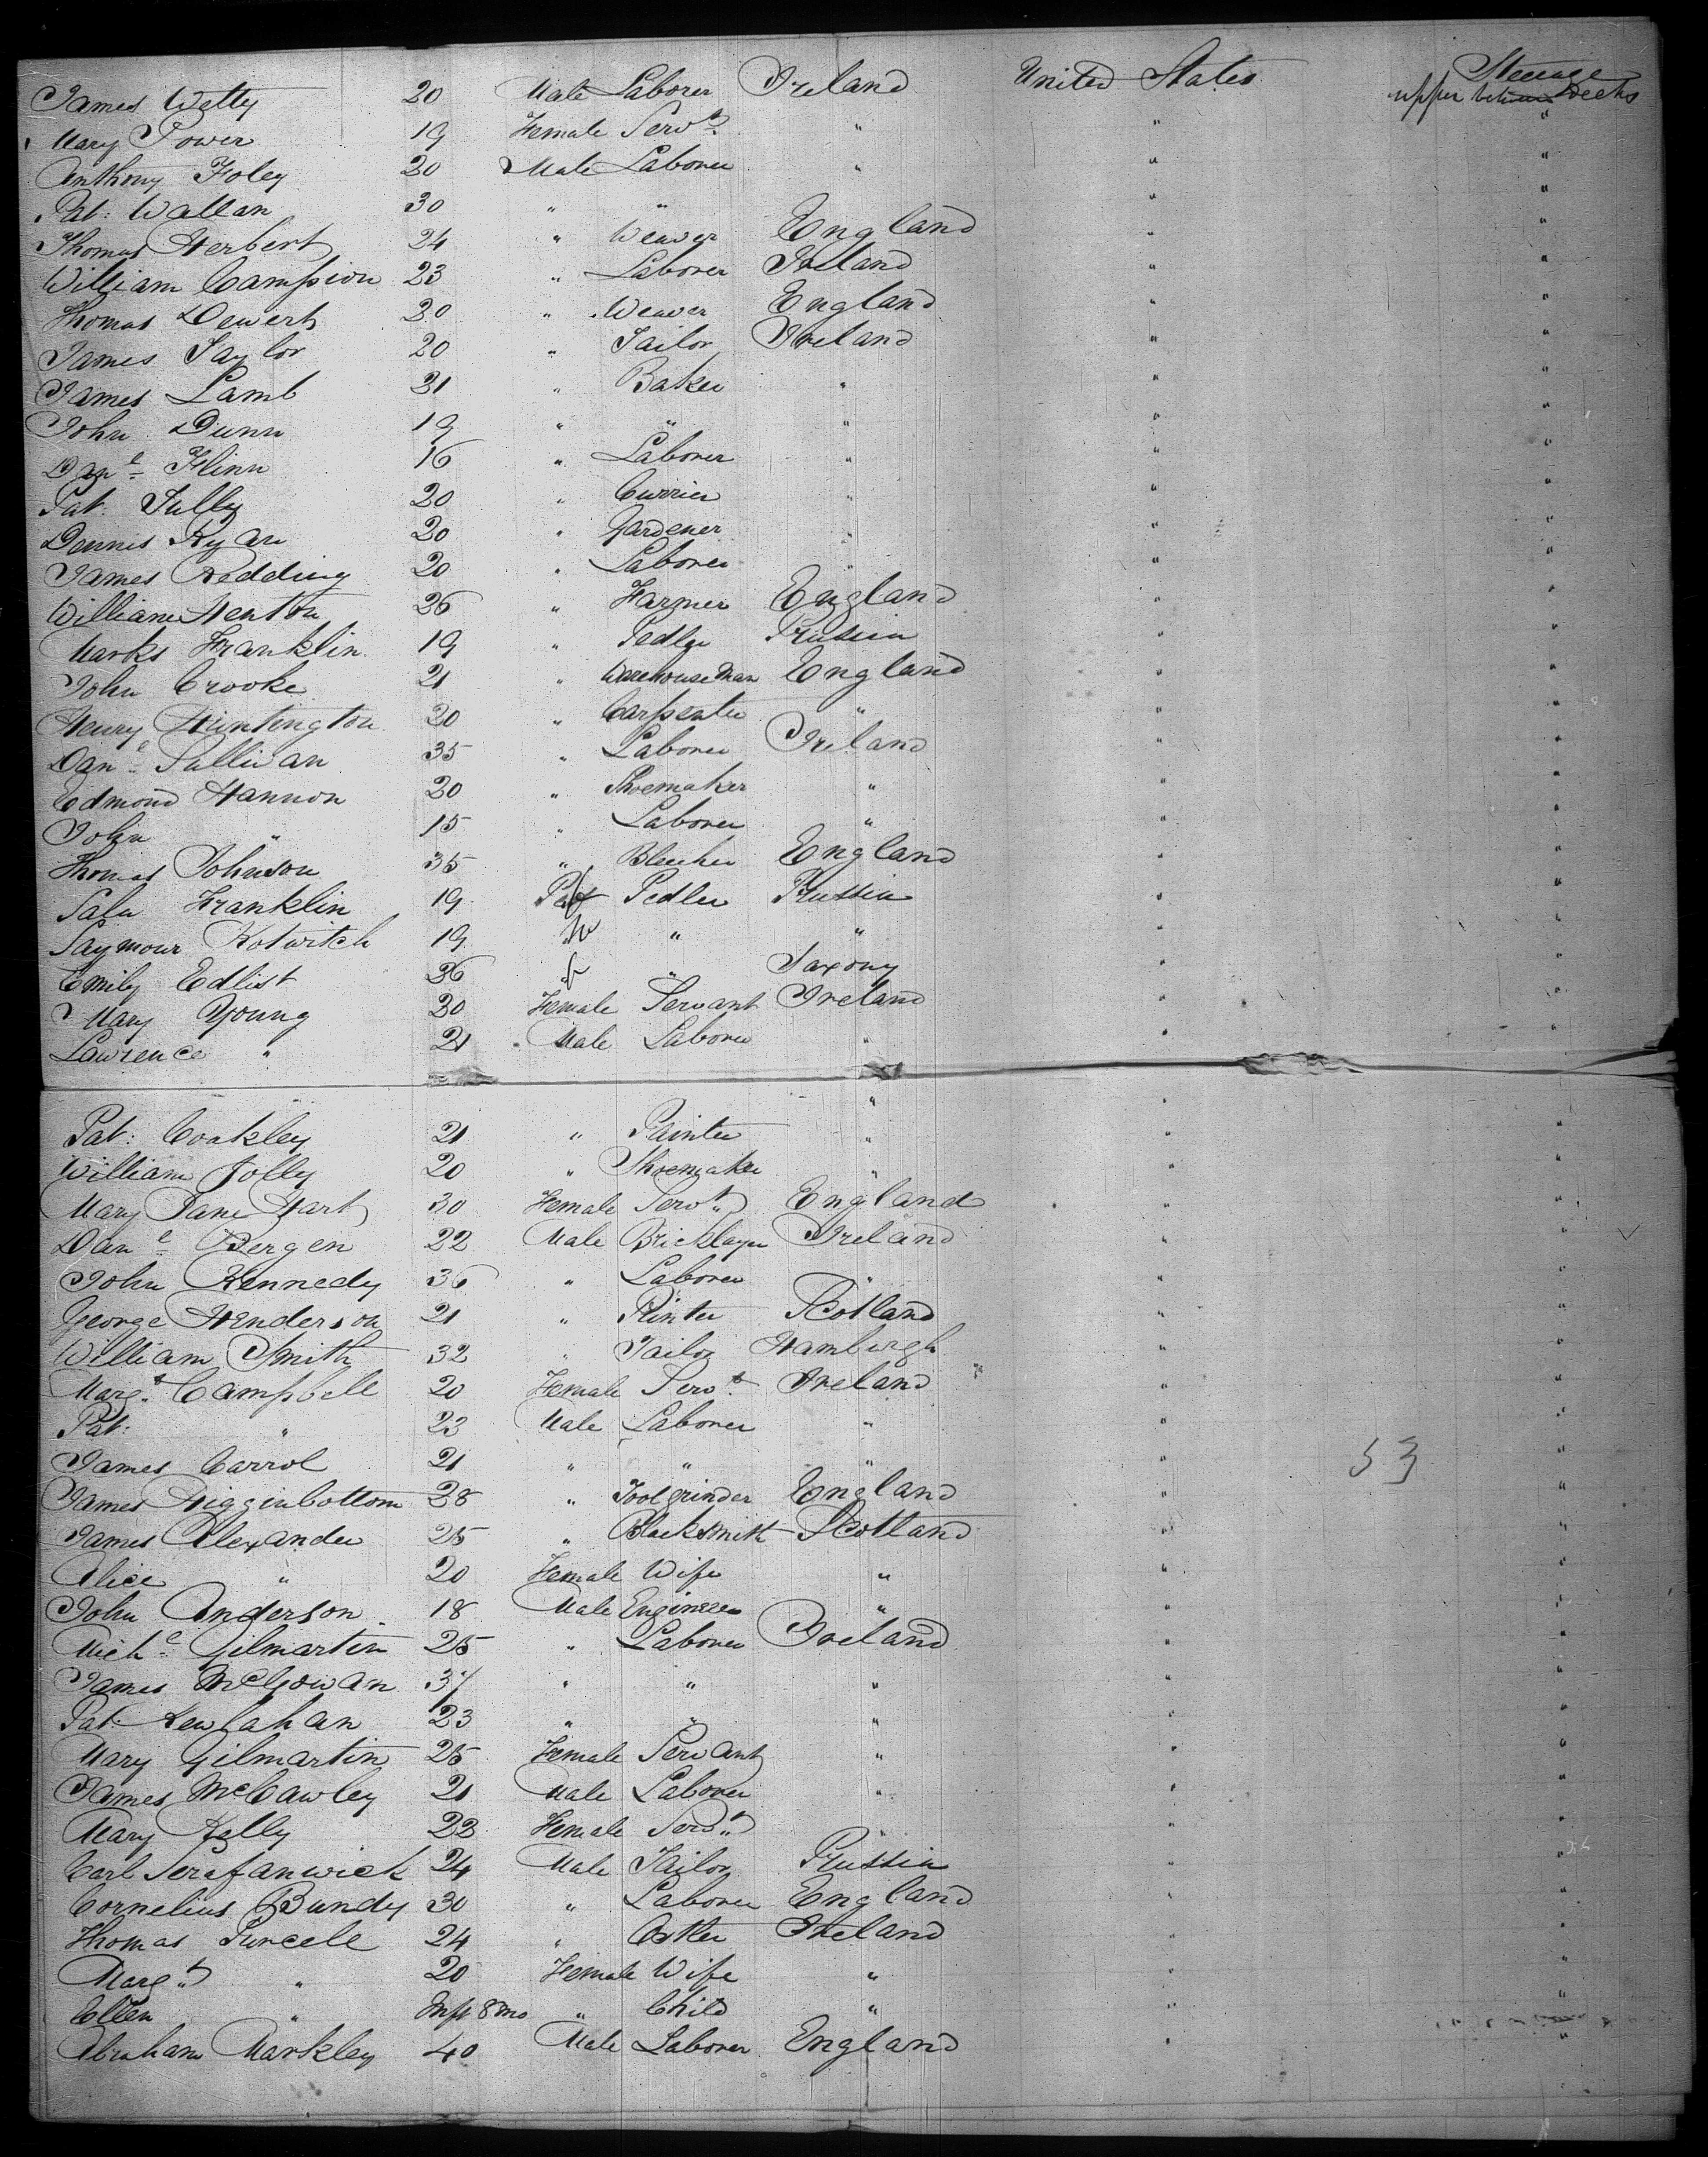 James Welty 20 Male Laborer Ireland United States Steerage
upper between Decks
Mary Power 19 Female Servt " " "
Anthony Foley 20 Male Laborer " " "
Pat: Wallan 30 " " " "
Thomas Herbert 24 " Weaver England " "
William Campion 23 " Laborer Ireland " "
Thomas Dewert 30 " Weaver England " "
James Taylor 20 " Tailor Ireland " "
James Lamb 21 " Baker " " "
John Dunn 19 " " " " "
Danl Flinn 16 " Laborer " " "
Pat: Tully 20 " Currier " " "
Dennis Ryan 20 " Gardener " " "
James Redding 20 " Laborer " " "
William Henton 26 " Farmer England " "
Marks Franklin 19 " Pedler Prussia " "
John Crooke 21 " Warehouseman England " "
Henry Huntington 20 " Carpenter " " "
Danl Sullivan 35 " Laborer Ireland " "
Edmond Hannon 20 " Shoemaker " " "
John " 15 " Laborer " " "
Thomas Johnson 35 " Bleecher England " "
Franklin 19 f Pedler Prussia " "
Saymour Kotwitch 19 m " " " "
Emily Edlist 36 f " Saxony " "
Mary Young 30 Female Servant Ireland " "
Lawrence " 21 Male Laborer " " "
Pat: Coakley 21 " Painter " " "
William Jolly 20 " Shoemaker " " "
Mary Jane Hart 30 Female Servt England " "
Danl Bergen 22 Male Bricklayer Ireland " "
John Kennedy 36 " Laborer " " "
George Henderson 21 " Printer Scotland " "
William Smith 32 " Tailor Hamburgh " "
Margt Campbell 20 Female Servt Ireland " "
Pat: " 23 Male Laborer " " "
James Carrol 21 " " " " 53 "
James Higginbottom 28 " Toolgrinder England " "
James Alexander 25 " Blacksmith Scotland " "
Alice " 20 Female Wife " " "
John Anderson 18 Male Engineer " " "
Michl Gilmartin 25 " Laborer Ireland " "
James McGowan 37 " " " " "
Pat: 23 " " " " "
Mary Gilmartin 25 Female Servant " " "
James McCawley 21 Male Laborer " " "
Mary Kelly 22 Female Servt " " "
Carl Serafanwick 24 Male Tailor Prussia " "
Cornelius Bundy 30 " Laborer England " "
Thomas Purcell 24 " Ireland " "
Margt " 20 Female Wife " " "
Ellen " Inft 8 mo " Child " " "
Abraham Markley 40 Male Laborer England " "